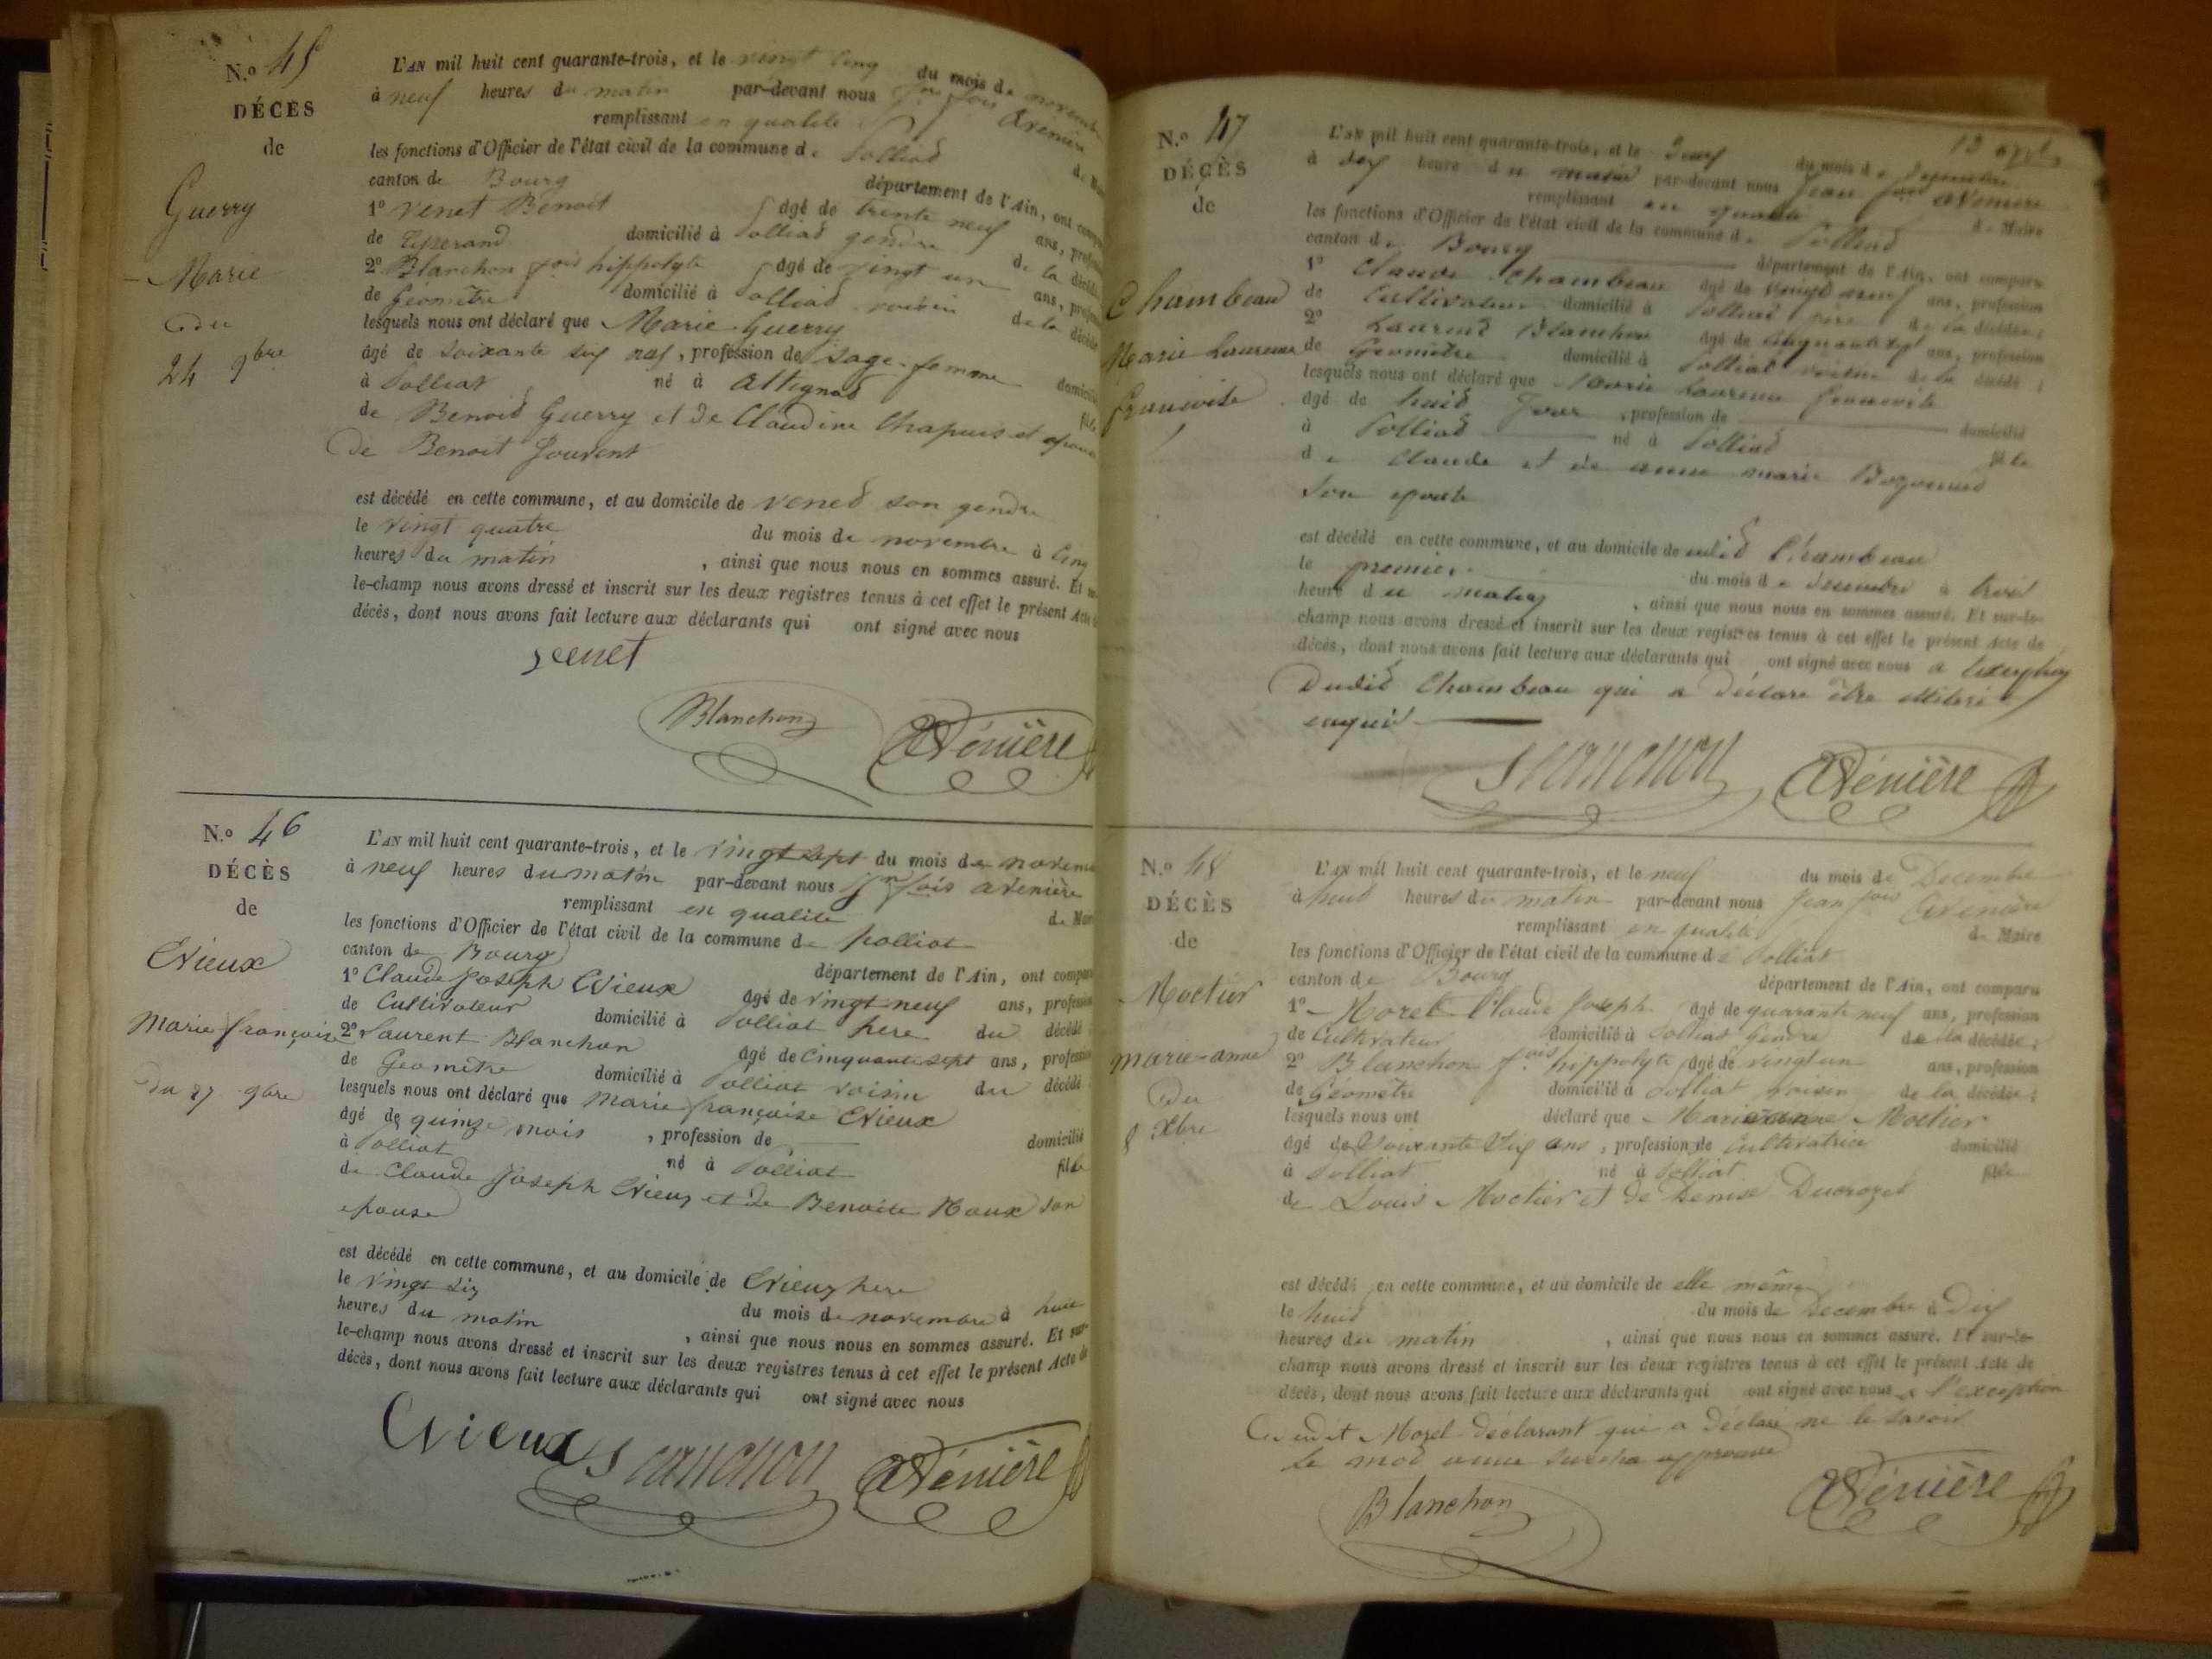 N.o 45
DÉCÈS
de
Guerry
Marie
du
24 9bre
L'AN mil huit cent quarante-trois, et le vingt cinq du mois de novembre
à neuf heures du matin par-devant nous jn fois avenière
remplissant en qualité de
les fonctions d'Officier de l'état civil de la commune de Polliat
canton de Bourg département de l'Ain, ont compa
1o Venet Benoit âgé de trente neuf ans, profes
de domicilié à Polliat gendre de la décédé
2o Blanchon fois hippolyte âgé de vingt un ans, profes
de Géomètre domicilié à Polliat voisin de la décédé
lesquels nous ont déclaré que Marie Guerry
âgé de soixante six ans, profession de sage-femme domicilié
à Polliat né à Attignat fille
de Benoit Guerry et de Claudine Chapuis et épouse
de Benoit
est décédé en cette commune, et au domicile de Venet son gendre
le vingt quatre du mois de novembre à cinq
heures du matin, ainsi que nous nous en sommes assuré. Et sur-
le-champ nous avons dressé et inscrit sur les deux registres tenus à cet effet le présent Acte de
décès, dont nous avons fait lecture aux déclarants qui ont signé avec nous
Venet
Blanchon Avénière
N.o 46
DÉCÈS
de
Evieux
Marie françoise
du 27 9bre
L'AN mil huit cent quarante-trois, et le vingt sept du mois de novem
à neuf heures du matin par-devant nous jn fois avenière
remplissant en qualité de Mai
les fonctions d'Officier de l'état civil de la commune de Polliat
canton de Bourg département de l'Ain, ont compa
1o Claude Joseph Evieux âgé de vingt neuf ans, profession
de Cultivateur domicilié à Polliat père du décédé
2o Laurent Blanchon âgé de cinquante sept ans, profession
de Géomètre domicilié à Polliat voisin du décédé
lesquels nous ont déclaré que Marie françoise Evieux
âgé de quinze mois, profession de domicilié
à Polliat né à Polliat fille
de Claude Joseph Evieux et de Benoite Roux son
épouse
est décédé en cette commune, et au domicile de Evieux père
le vingt six du mois de novembre à huit
heures du matin, ainsi que nous nous en sommes assuré. Et sur-
le-champ nous avons dressé et inscrit sur les deux registres tenus à cet effet le présent Acte de
décès, dont nous avons fait lecture aux déclarants qui ont signé avec nous
Evieux Blanchon Avénière
N.o 47
DÉCÈS
de
Chambeau
Marie Laurence
françoise
L'AN mil huit cent quarante-trois, et le deux du mois de décembre
à dix heure du matin par-devant nous Jean fois avenière
remplissant en qualité de Maire
les fonctions d'Officier de l'état civil de la commune de Polliat
canton de Bourg département de l'Ain, ont comparu
1o Claude Chambeau âgé de vingt neuf ans, profession
de Cultivateur domicilié à Polliat père de la décédée;
2o Laurent Blanchon âgé de cinquante sept ans, profession
de Géomètre domicilié à Polliat voisin de la décédé;
lesquels nous ont déclaré que Marie Laurence françoise
âgé de huit jour, profession de domicilié
à Polliat né à Polliat fille
de Claude et de anne marie Bozonnet
son épouse
est décédé en cette commune, et au domicile de du Chambeau
le premier du mois de décembre à trois
heure du matin, ainsi que nous nous en sommes assuré. Et sur-le-
champ nous avons dressé et inscrit sur les deux registres tenus à cet effet le présent Acte de
décès, dont nous avons fait lecture aux déclarants qui ont signé avec nous a l'exception
Dudit Chambeau qui a déclaré être illitéré
enquis
Blanchon Avénière
N.o 48
DÉCÈS
de
Moctier
marie-anne
du
8 Xbre
L'AN mil huit cent quarante-trois, et le neuf du mois de Decembre
à huit heures du matin par-devant nous Jean fois Avenière
remplissant en qualité de Maire
les fonctions d'Officier de l'état civil de la commune de Polliat
canton de Bourg département de l'Ain, ont comparu
1o Morel Claude Joseph âgé de quarante neuf ans, profession
de Cultivateur domicilié à Polliat Gendre de la décédée;
2o Blanchon fois hippolyte âgé de vingt un ans, profession
de Géomètre domicilié à Polliat voisin de la décédée;
lesquels nous ont déclaré que Marie anne Moctier
âgé de Soixante dix ans, profession de Cultivatrice domicilié
à Polliat né à Polliat fille
de Louis Moctier et de Denise Ducrozet
est décédé en cette commune, et au domicile de elle même
le huit du mois de Decembre à Dix
heures du matin, ainsi que nous nous en sommes assuré. Et sur-le-
champ nous avons dressé et inscrit sur les deux registres tenus à cet effet le présent Acte de
décès, dont nous avons fait lecture aux déclarants qui ont signé avec nous a l'exception
dudit Morel déclarant qui a déclaré ne le savoir
le mot anne approuvé
Blanchon Avénière